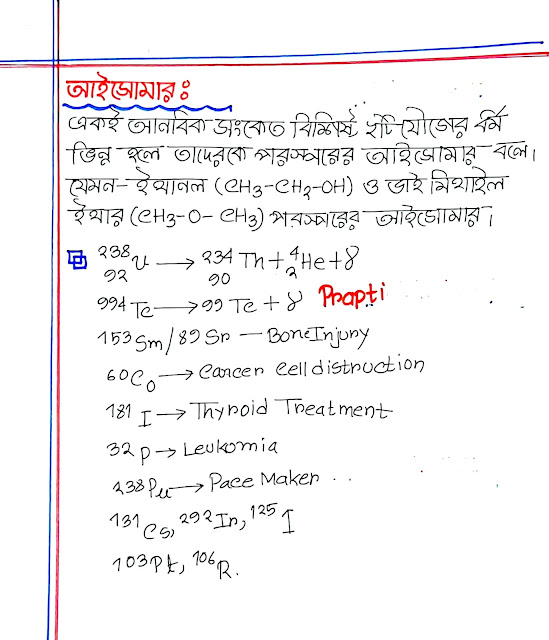 আইসোমারঃ
একই আনবিক সংকেত বিশিষ্ট দুটি যৌগের ধর্ম
ভিন্ন হলে তাদেরকে পরস্পরের আইসোমার বলে।
যেমন- ইথানল (CH3-CH2-OH) ও ডাই মিথাইল
ইথার (CH3-O-CH3) পরস্পরের আইসোমার।
²³⁸₉₂U → ²³⁴₉₀Th + ⁴₂He + γ
99mTc → 99 Tc + γ Prapti
153Sm/89Sr - Bone Injury
60Co → Cancer Cell distruction
131 I → Thyroid Treatment
32 P → Leukomia
238Pu → Pace Maker
131 Cs, 192 Ir, 125 I
103Pd, 106R.